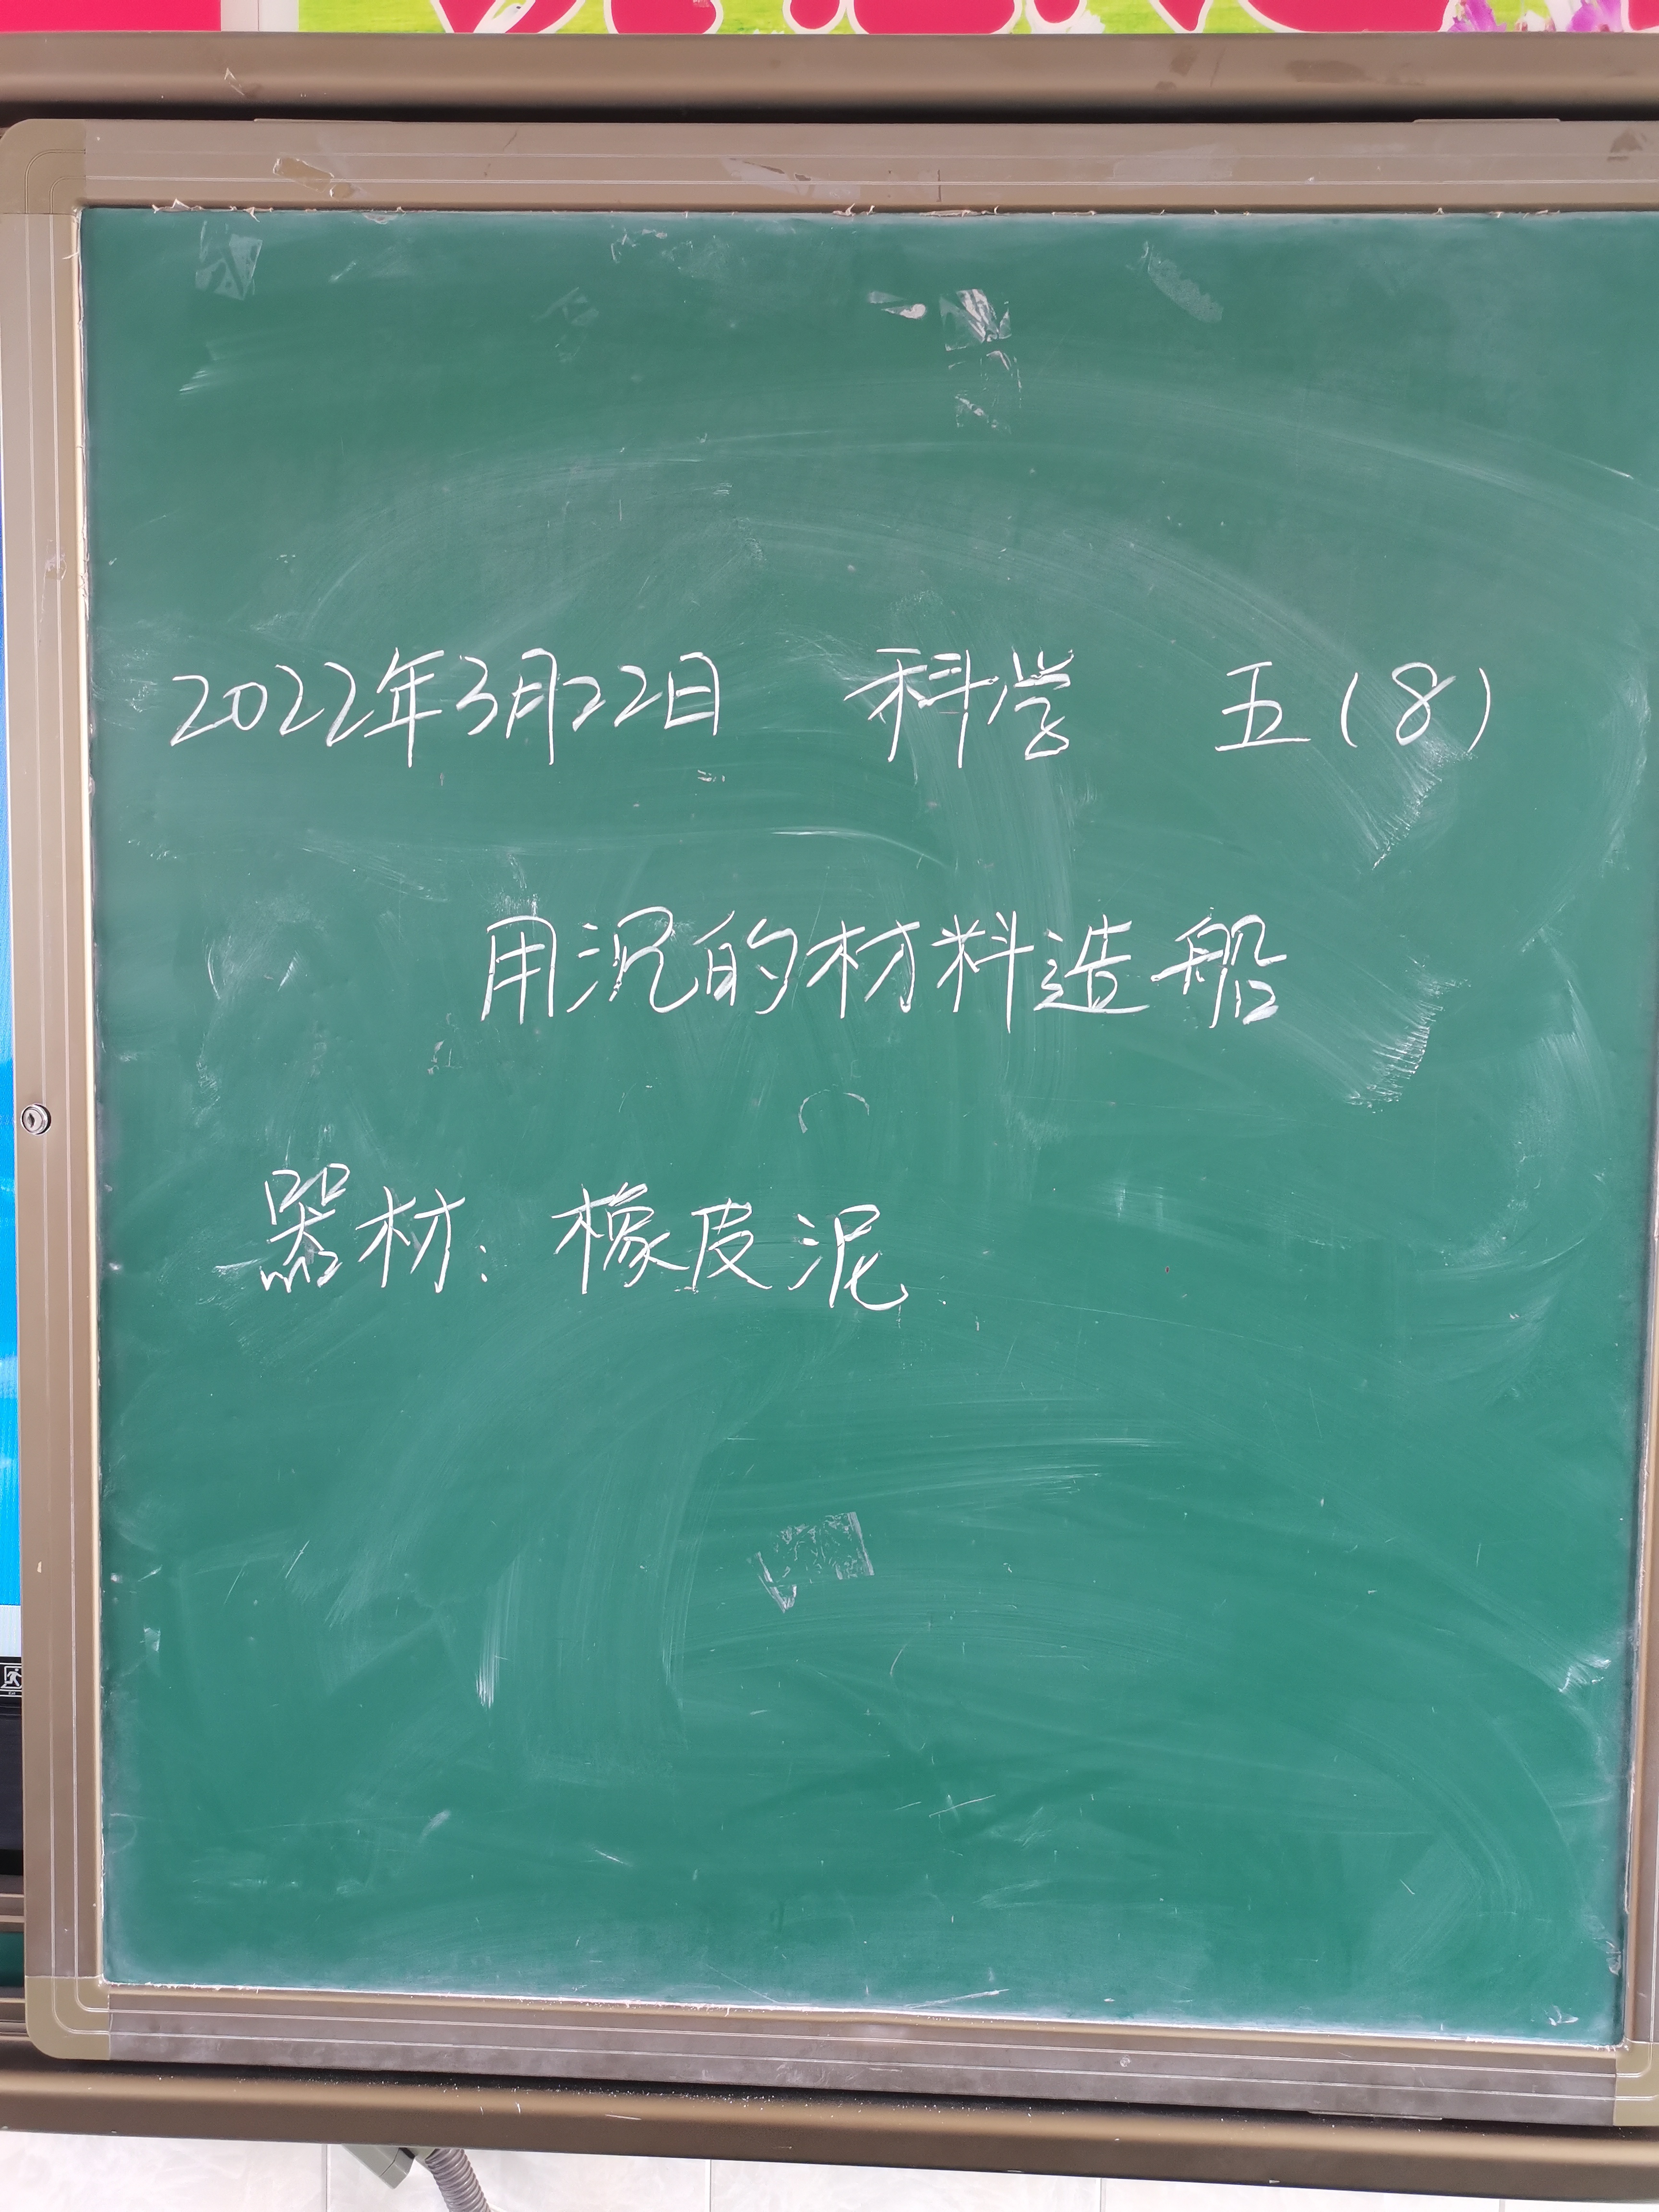 2022年3月22日 科学 五(8)
用沉的材料造船
器材:橡皮泥